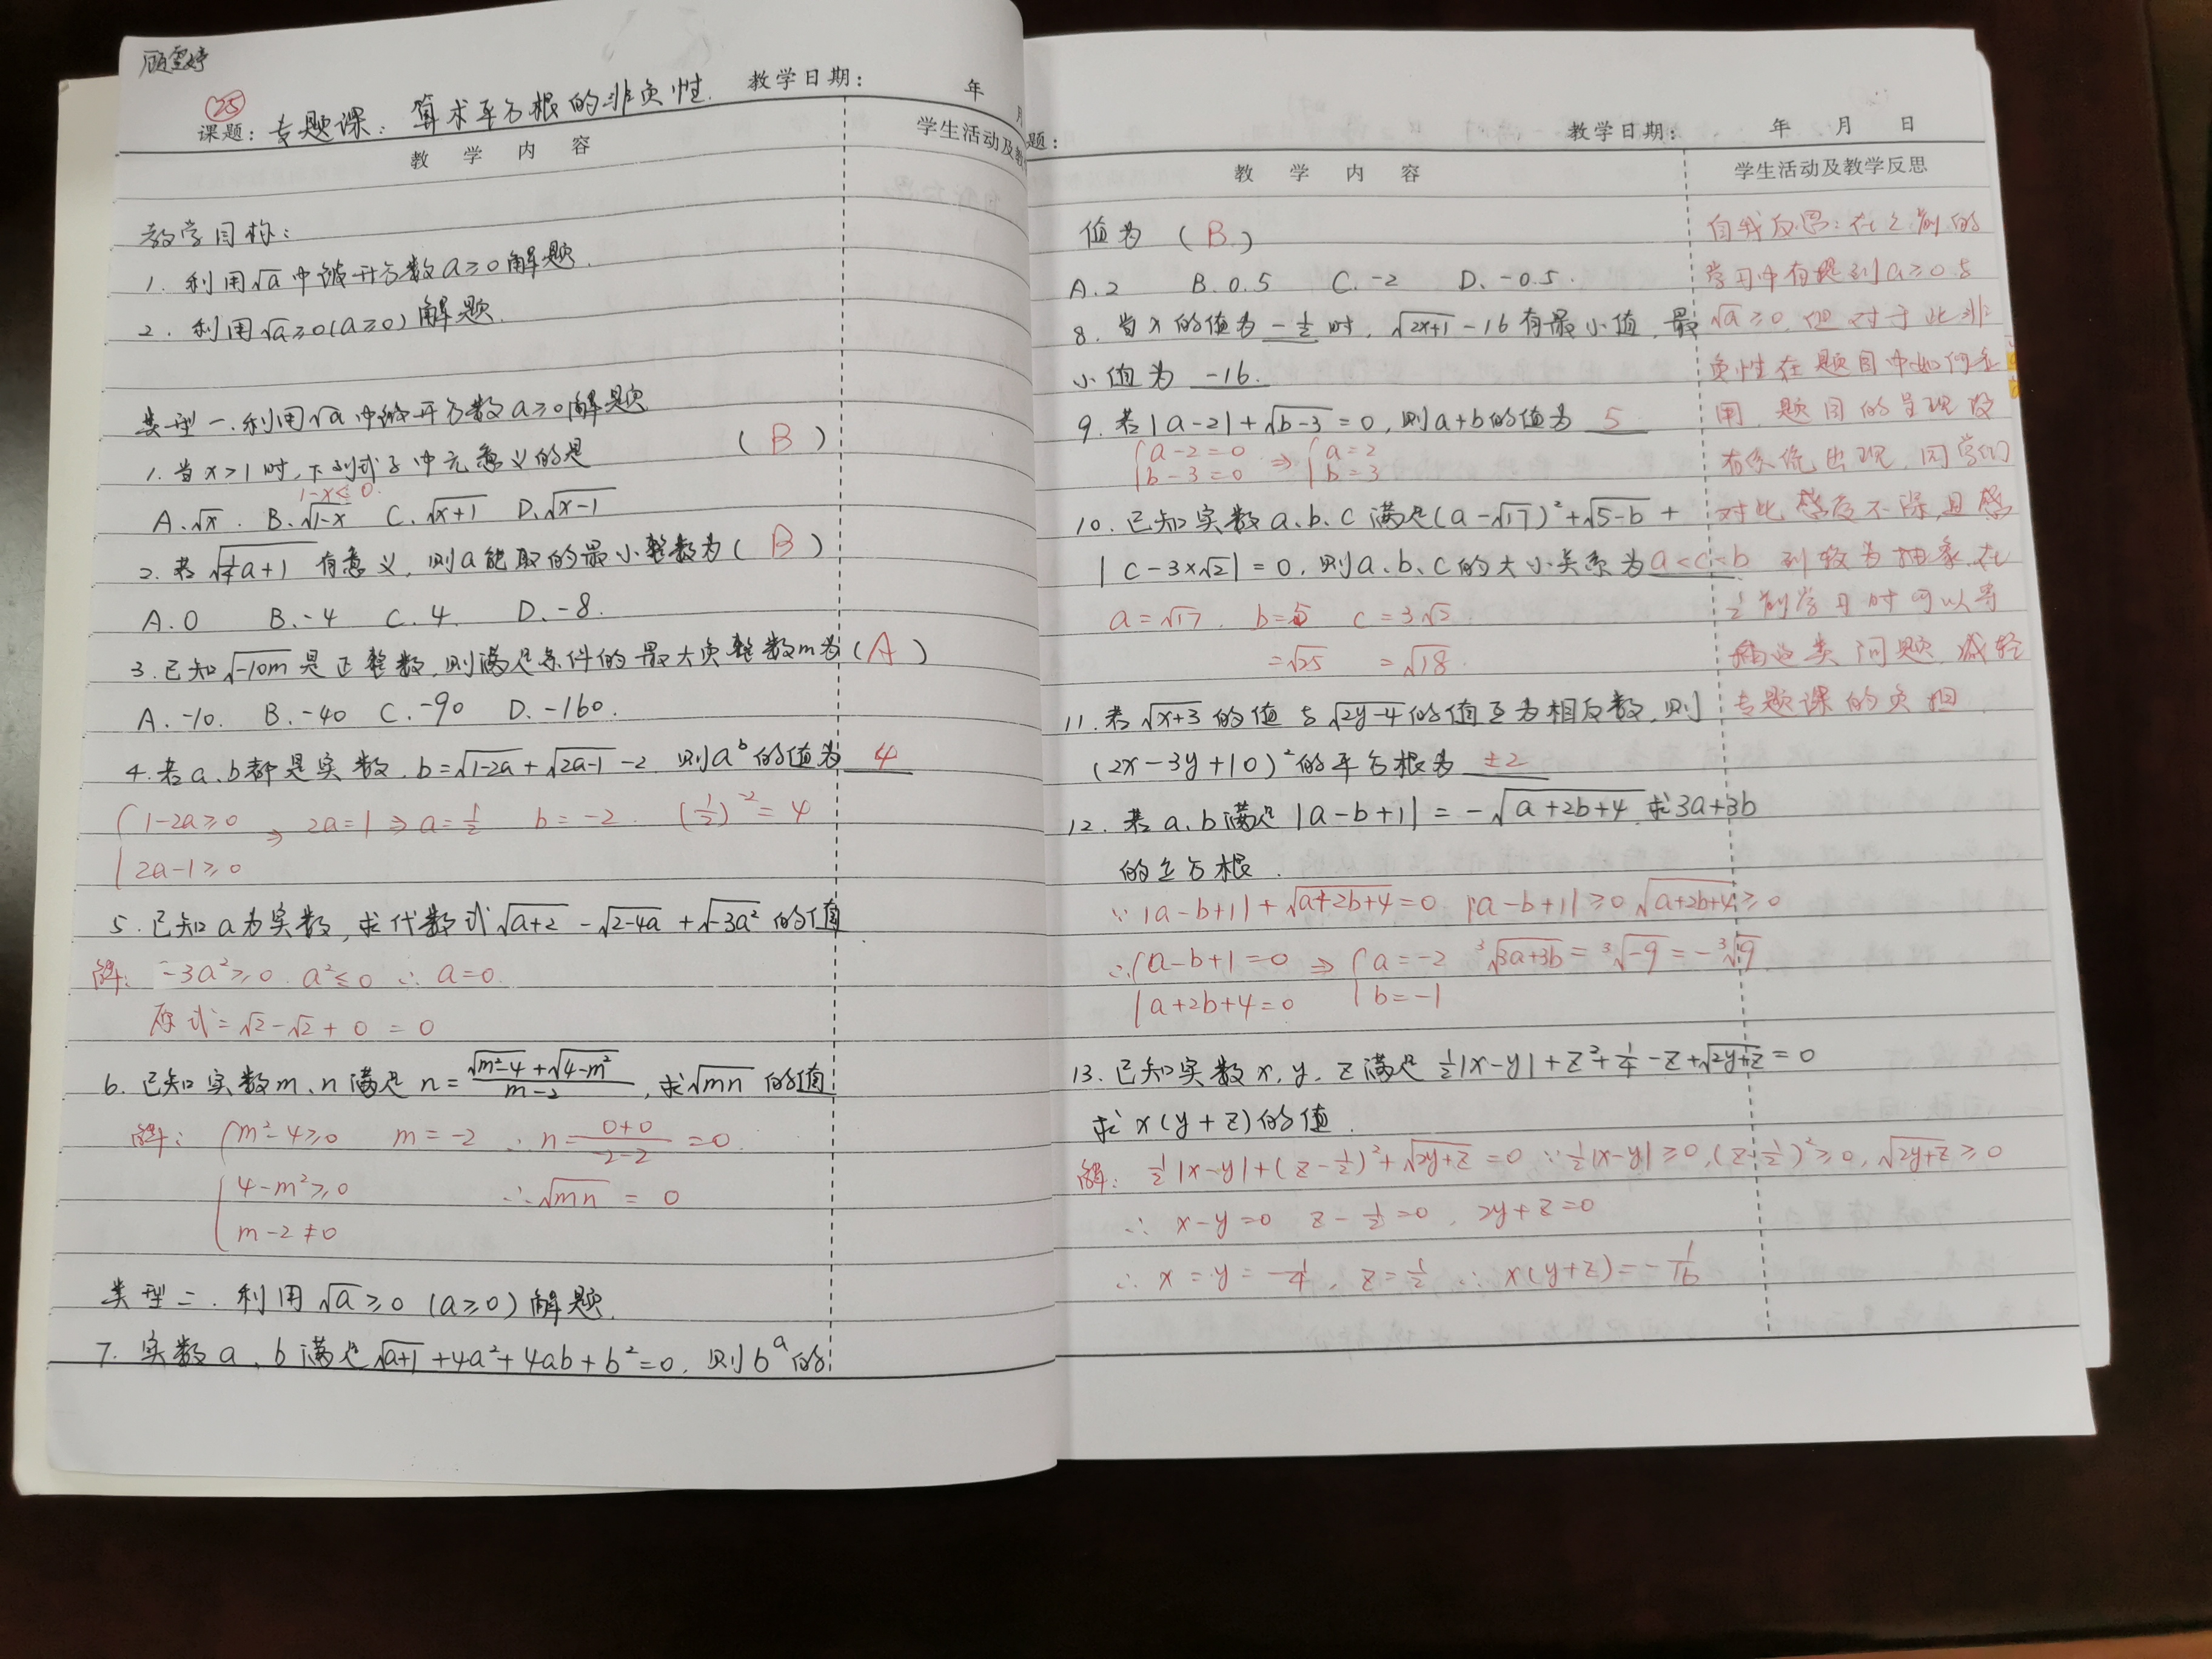 顾雪婷
㉕
课题：专题课：算术平方根的非负性. 教学日期： 年 月
教 学 内 容 学生活动及教
教学目标：
1. 利用√a中被开方数a≥0解题.
2. 利用√a≥0(a≥0)解题.
类型一.利用√a中被开方数a≥0解题
1.当x>1时,下列式子中无意义的是 (B)
1-x≤0.
A.√x. B.√(1-x) C.√(x+1) D.√(x-1)
2.若√(½a+1)有意义,则a能取的最小整数为(B)
A.0 B.-4 C.4. D.-8.
3.已知√(-10m)是正整数,则满足条件的最大负整数m为(A)
A.-10. B.-40 C.-90 D.-160.
4.若a、b都是实数.b=√(1-2a)+√(2a-1)-2 则aᵇ的值为 4
{1-2a≥0 ⇒ 2a=1⇒a=½ b=-2. (½)⁻²=4
2a-1≥0
5.已知a为实数,求代数式√(a+2)-√(2-4a)+√(-3a²)的值.
解: -3a²≥0. a²≤0 ∴a=0.
原式=√2-√2+0=0
6.已知实数m、n满足n=(√(m²-4)+√(4-m²))/(m-2),求√(mn)的值
解: {m²-4≥0 m=-2 ∴n=(0+0)/(-2-2)=0.
4-m²≥0 ∴√(mn)=0
m-2≠0
类型二.利用√a≥0(a≥0)解题.
7.实数a、b满足√(a+1)+4a²+4ab+b²=0.则bᵃ的
题： 教学日期： 年 月 日
教 学 内 容 学生活动及教学反思
值为 (B)
A.2 B.0.5 C.-2 D.-0.5.
8.当x的值为-½时,√(2x+1)-16有最小值,最
小值为 -16.
9.若|a-2|+√(b-3)=0,则a+b的值为 5
{a-2=0 ⇒ {a=2
b-3=0 b=3
10.已知实数a.b.c满足(a-√17)²+√(5-b)+
|c-3×√2|=0.则a、b、c的大小关系为a<c<b
a=√17. b=5 c=3√2
=√25 =√18.
11.若√(x+3)的值与√(2y-4)的值互为相反数,则
(2x-3y+10)²的平方根为 ±2
12.若a、b满足|a-b+1|=-√(a+2b+4).求3a+3b
的立方根.
∵|a-b+1|+√(a+2b+4)=0 |a-b+1|≥0 √(a+2b+4)≥0
∴{a-b+1=0 ⇒ {a=-2 ³√(3a+3b)=³√(-9)=-³√9
a+2b+4=0 b=-1
13.已知实数x,y,z满足½|x-y|+z²+¼-z+√(2y+z)=0
求x(y+z)的值.
解: ½|x-y|+(z-½)²+√(2y+z)=0 ∵½|x-y|≥0,(z-½)²≥0,√(2y+z)≥0
∴ x-y=0 z-½=0, 2y+z=0
∴ x=y=-¼, z=½ ∴x(y+z)=-1/16
自我反思:在之前的
学习中有提到a≥0与
√a≥0,但对于此非
负性在题目中如何应
用,题目的呈现没
有系统出现,同学们
对此 不深,且感
到较为抽象.在
之前学习时可以穿
插此类问题,减轻
专题课的负担.